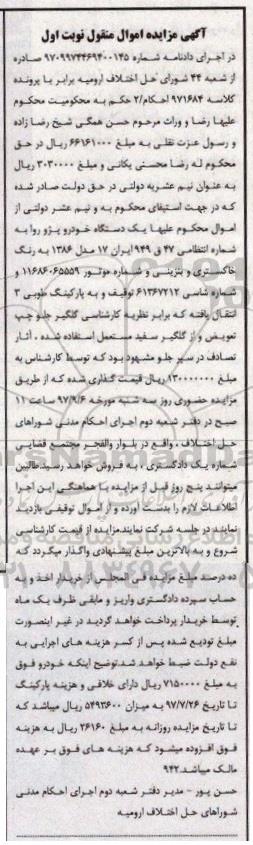 آگهی مزایده اموال منقول نوبت اول
در اجرای دادنامه شماره ۹۷۰۹۹۷۴۴۶۹۴۰۰۱۴۵ صادره
از شعبه ۴۴ شورای حل اختلاف ارومیه برابر با پرونده
کلاسه ۹۷۱۶۸۴ احکام/۲ حکم به محکومیت محکوم
علیها رضا و وراث مرحوم حسن همگی شیخ رضا زاده
و رسول عزت نقلی به مبلغ ۶۶۱۶۱۰۰۰ ریال در حق
محکوم له رضا محسنی یکانی و مبلغ ۳۰۳۰۰۰۰ ریال
به عنوان نیم عشریه دولتی در حق دولت صادر شده
که در جهت استیفای محکوم به و نیم عشر دولتی از
اموال محکوم علیها یک دستگاه خودرو پژو روا به
شماره انتظامی ۴۷ ق ۹۴۹ ایران ۱۷ مدل ۱۳۸۶ به رنگ
خاکستری و بنزینی و شماره موتور ۱۱۶۸۶۰۶۵۵۵۹ و
شماره شاسی ۶۱۳۶۷۲۱۲ توقیف و به پارکینگ طوبی ۳
انتقال یافته که برابر نظریه کارشناسی گلگیر جلو چپ
تعویض و از گلگیر سفید مستعمل استفاده شده ، آثار
تصادف در سپر جلو مشهود بود که توسط کارشناس به
مبلغ ۱۳۰۰۰۰۰۰۰ ریال قیمت گذاری شده که از طریق
مزایده حضوری روز سه شنبه مورخه ۹۷/۹/۶ ساعت ۱۱
صبح در دفتر شعبه دوم اجرای احکام مدنی شوراهای
حل اختلاف ، واقع در بلوار والفجر مجتمع قضایی
شماره یک دادگستری ، به فروش خواهد رسید.طالبین
میتوانند پنج روز قبل از مزایده با هماهنگی این اجرا
اطلاعات لازم را بدست آورده و از اموال توقیفی بازدید
نمایند در جلسه شرکت نمایند.مزایده از قیمت کارشناسی
شروع و به بالاترین مبلغ پیشنهادی واگذار میگردد که
ده درصد مبلغ مزایده فی المجلس از خریدار اخذ و به
حساب سپرده دادگستری واریز و مابقی ظرف یک ماه
توسط خریدار پرداخت خواهد گردید در غیر اینصورت
مبلغ تودیع شده پس از کسر هزینه های اجرایی به
نفع دولت ضبط خواهد شد.توضیح اینکه خودرو فوق
به مبلغ ۷۱۵۰۰۰۰ ریال دارای خلافی و هزینه پارکینگ
تا تاریخ ۹۷/۷/۲۶ به میزان ۵۴۹۳۶۰۰ ریال میباشد که
تا تاریخ مزایده روزانه به مبلغ ۲۶۱۶۰ ریال به هزینه
فوق افزوده میشود که هزینه های فوق بر عهده
مالک میباشد.۹۴۲
حسن پور - مدیر دفتر شعبه دوم اجرای احکام مدنی
شوراهای حل اختلاف ارومیه